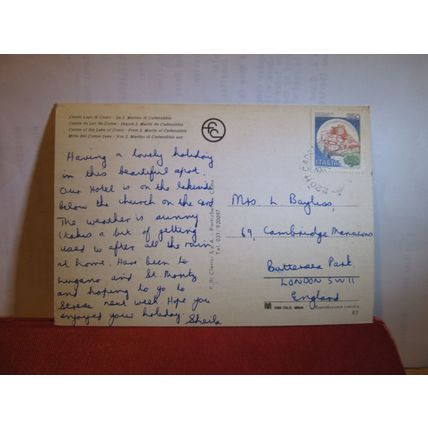 Centro Lago di Como - Da S. Martino di Cadenabbia
Centre du Lac de Come - Depuis S. Martin de Cadenabbia
Centre of the Lake of Como - From S. Martin of Cadenabbia
Mitte des Comer Sees - Von S. Martino di Cadenabbia aus
ITALIA
Having a lovely holiday
in this beautiful spot.
Our Hotel is on the lakeside
below the church on the card
The weather is sunny
(takes a bit of getting
used to after all the rain
at home. Have been to
Lugano and St Moritz
and hoping to go to
Stresa next week Hope you
enjoyed your holiday. Sheila
Mrs L. Bayliss,
69, Cambridge Mansions
Battersea Park,
LONDON SW11
England